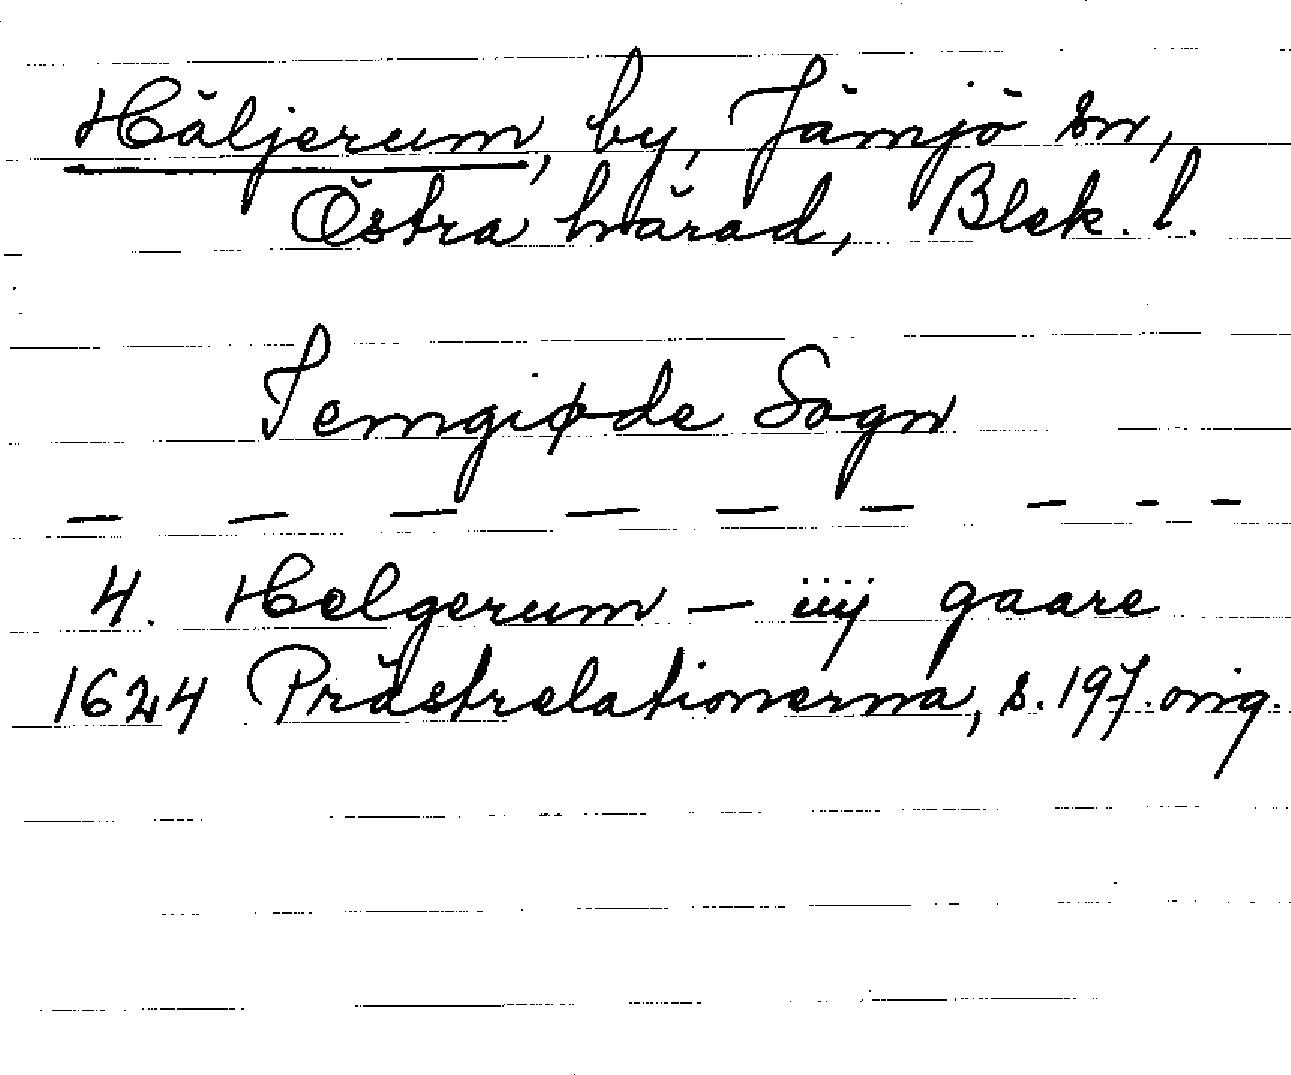 Häljerum, by, Jämjö sn,
Östra härad, Blek. l.
Jemgiøde Sogn
— — — — — — — - -
4. Helgerum — iiij gaare
1624 Prästrelationerna, s. 197. orig.